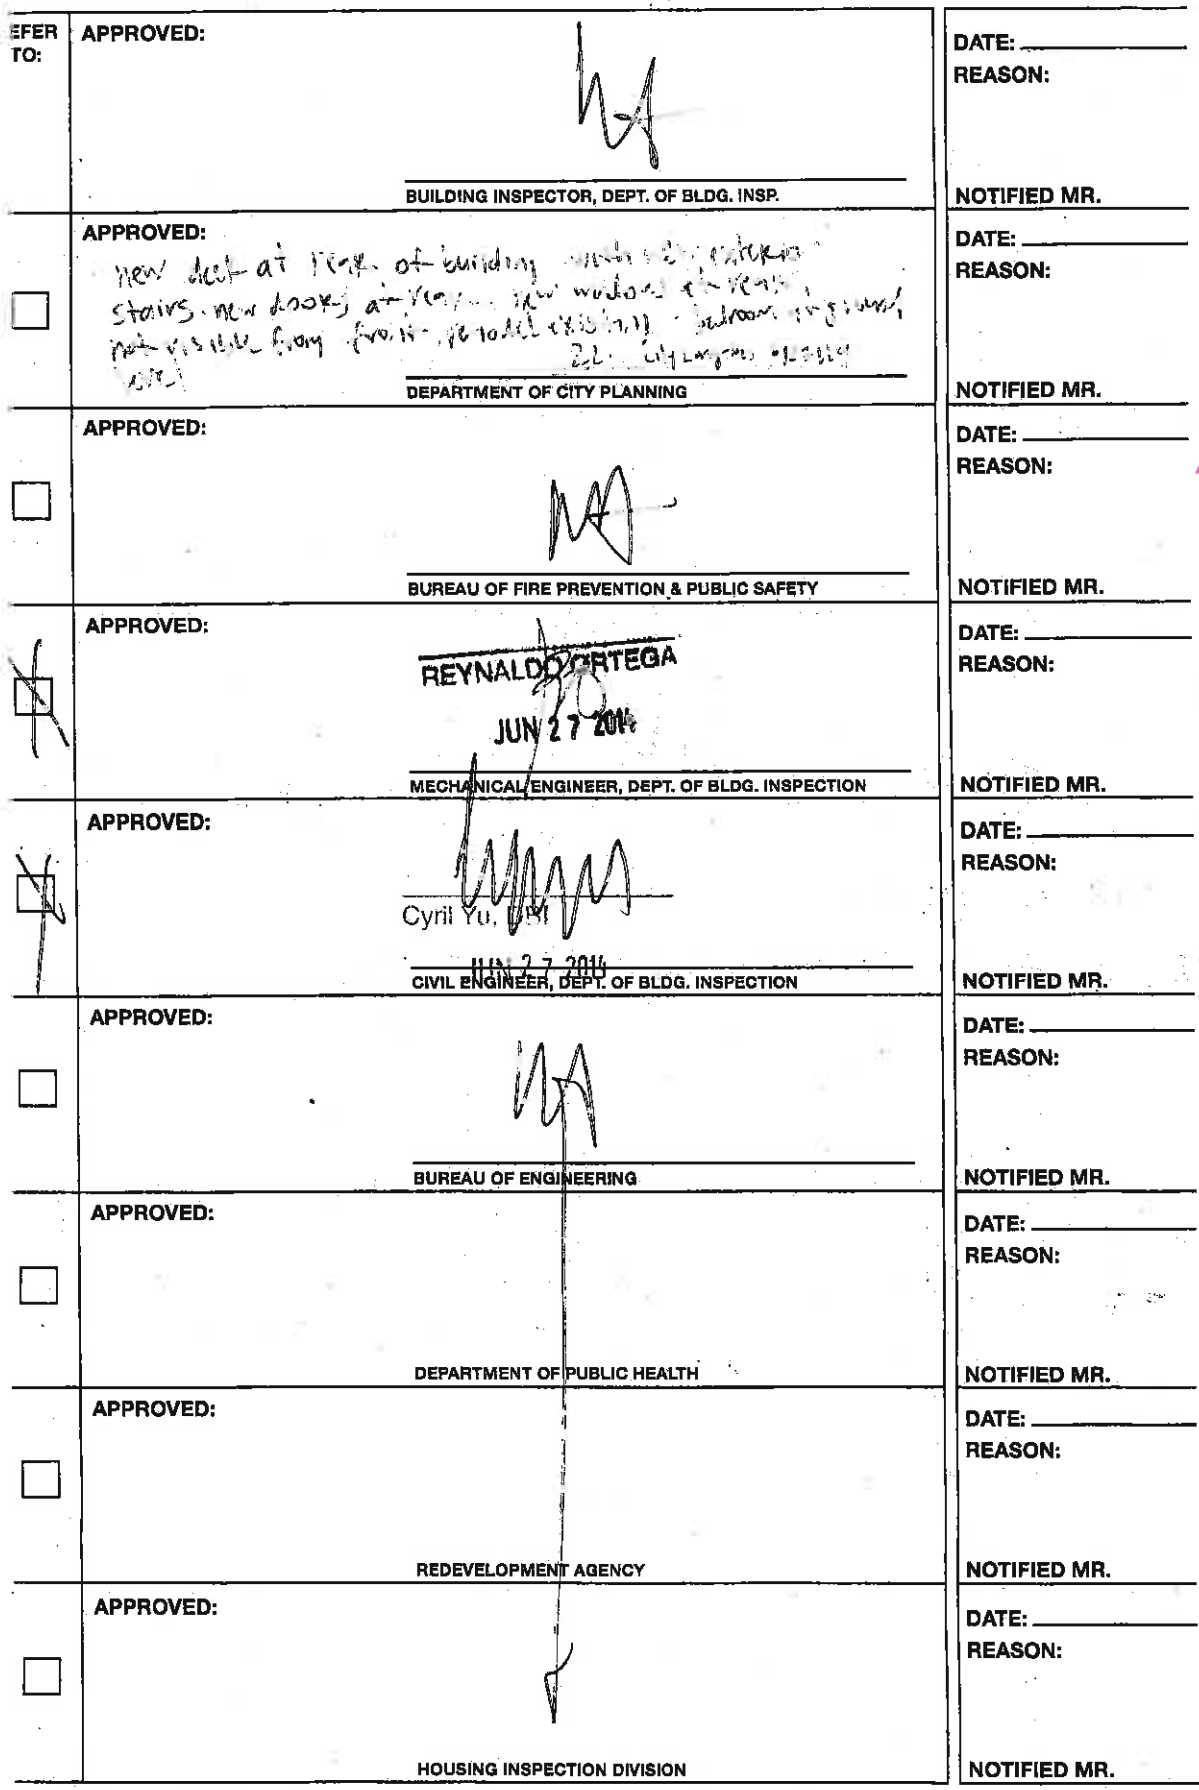 EFER
TO:
APPROVED:
NA
BUILDING INSPECTOR, DEPT. OF BLDG. INSP.
DATE:
REASON:
NOTIFIED MR.
APPROVED:
new deck at rear of building with exterior
stairs. new doors at rear. new windows at rear,
not visible from front. remodel existing bedroom ground
level
DEPARTMENT OF CITY PLANNING
DATE:
REASON:
NOTIFIED MR.
APPROVED:
NA
BUREAU OF FIRE PREVENTION & PUBLIC SAFETY
DATE:
REASON:
NOTIFIED MR.
APPROVED:
REYNALDO ORTEGA
JUN 27 2014
MECHANICAL ENGINEER, DEPT. OF BLDG. INSPECTION
DATE:
REASON:
NOTIFIED MR.
APPROVED:
Cyril Yu, DBI
JUN 27 2014
CIVIL ENGINEER, DEPT. OF BLDG. INSPECTION
DATE:
REASON:
NOTIFIED MR.
APPROVED:
NA
BUREAU OF ENGINEERING
DATE:
REASON:
NOTIFIED MR.
APPROVED:
DEPARTMENT OF PUBLIC HEALTH
DATE:
REASON:
NOTIFIED MR.
APPROVED:
REDEVELOPMENT AGENCY
DATE:
REASON:
NOTIFIED MR.
APPROVED:
HOUSING INSPECTION DIVISION
DATE:
REASON:
NOTIFIED MR.